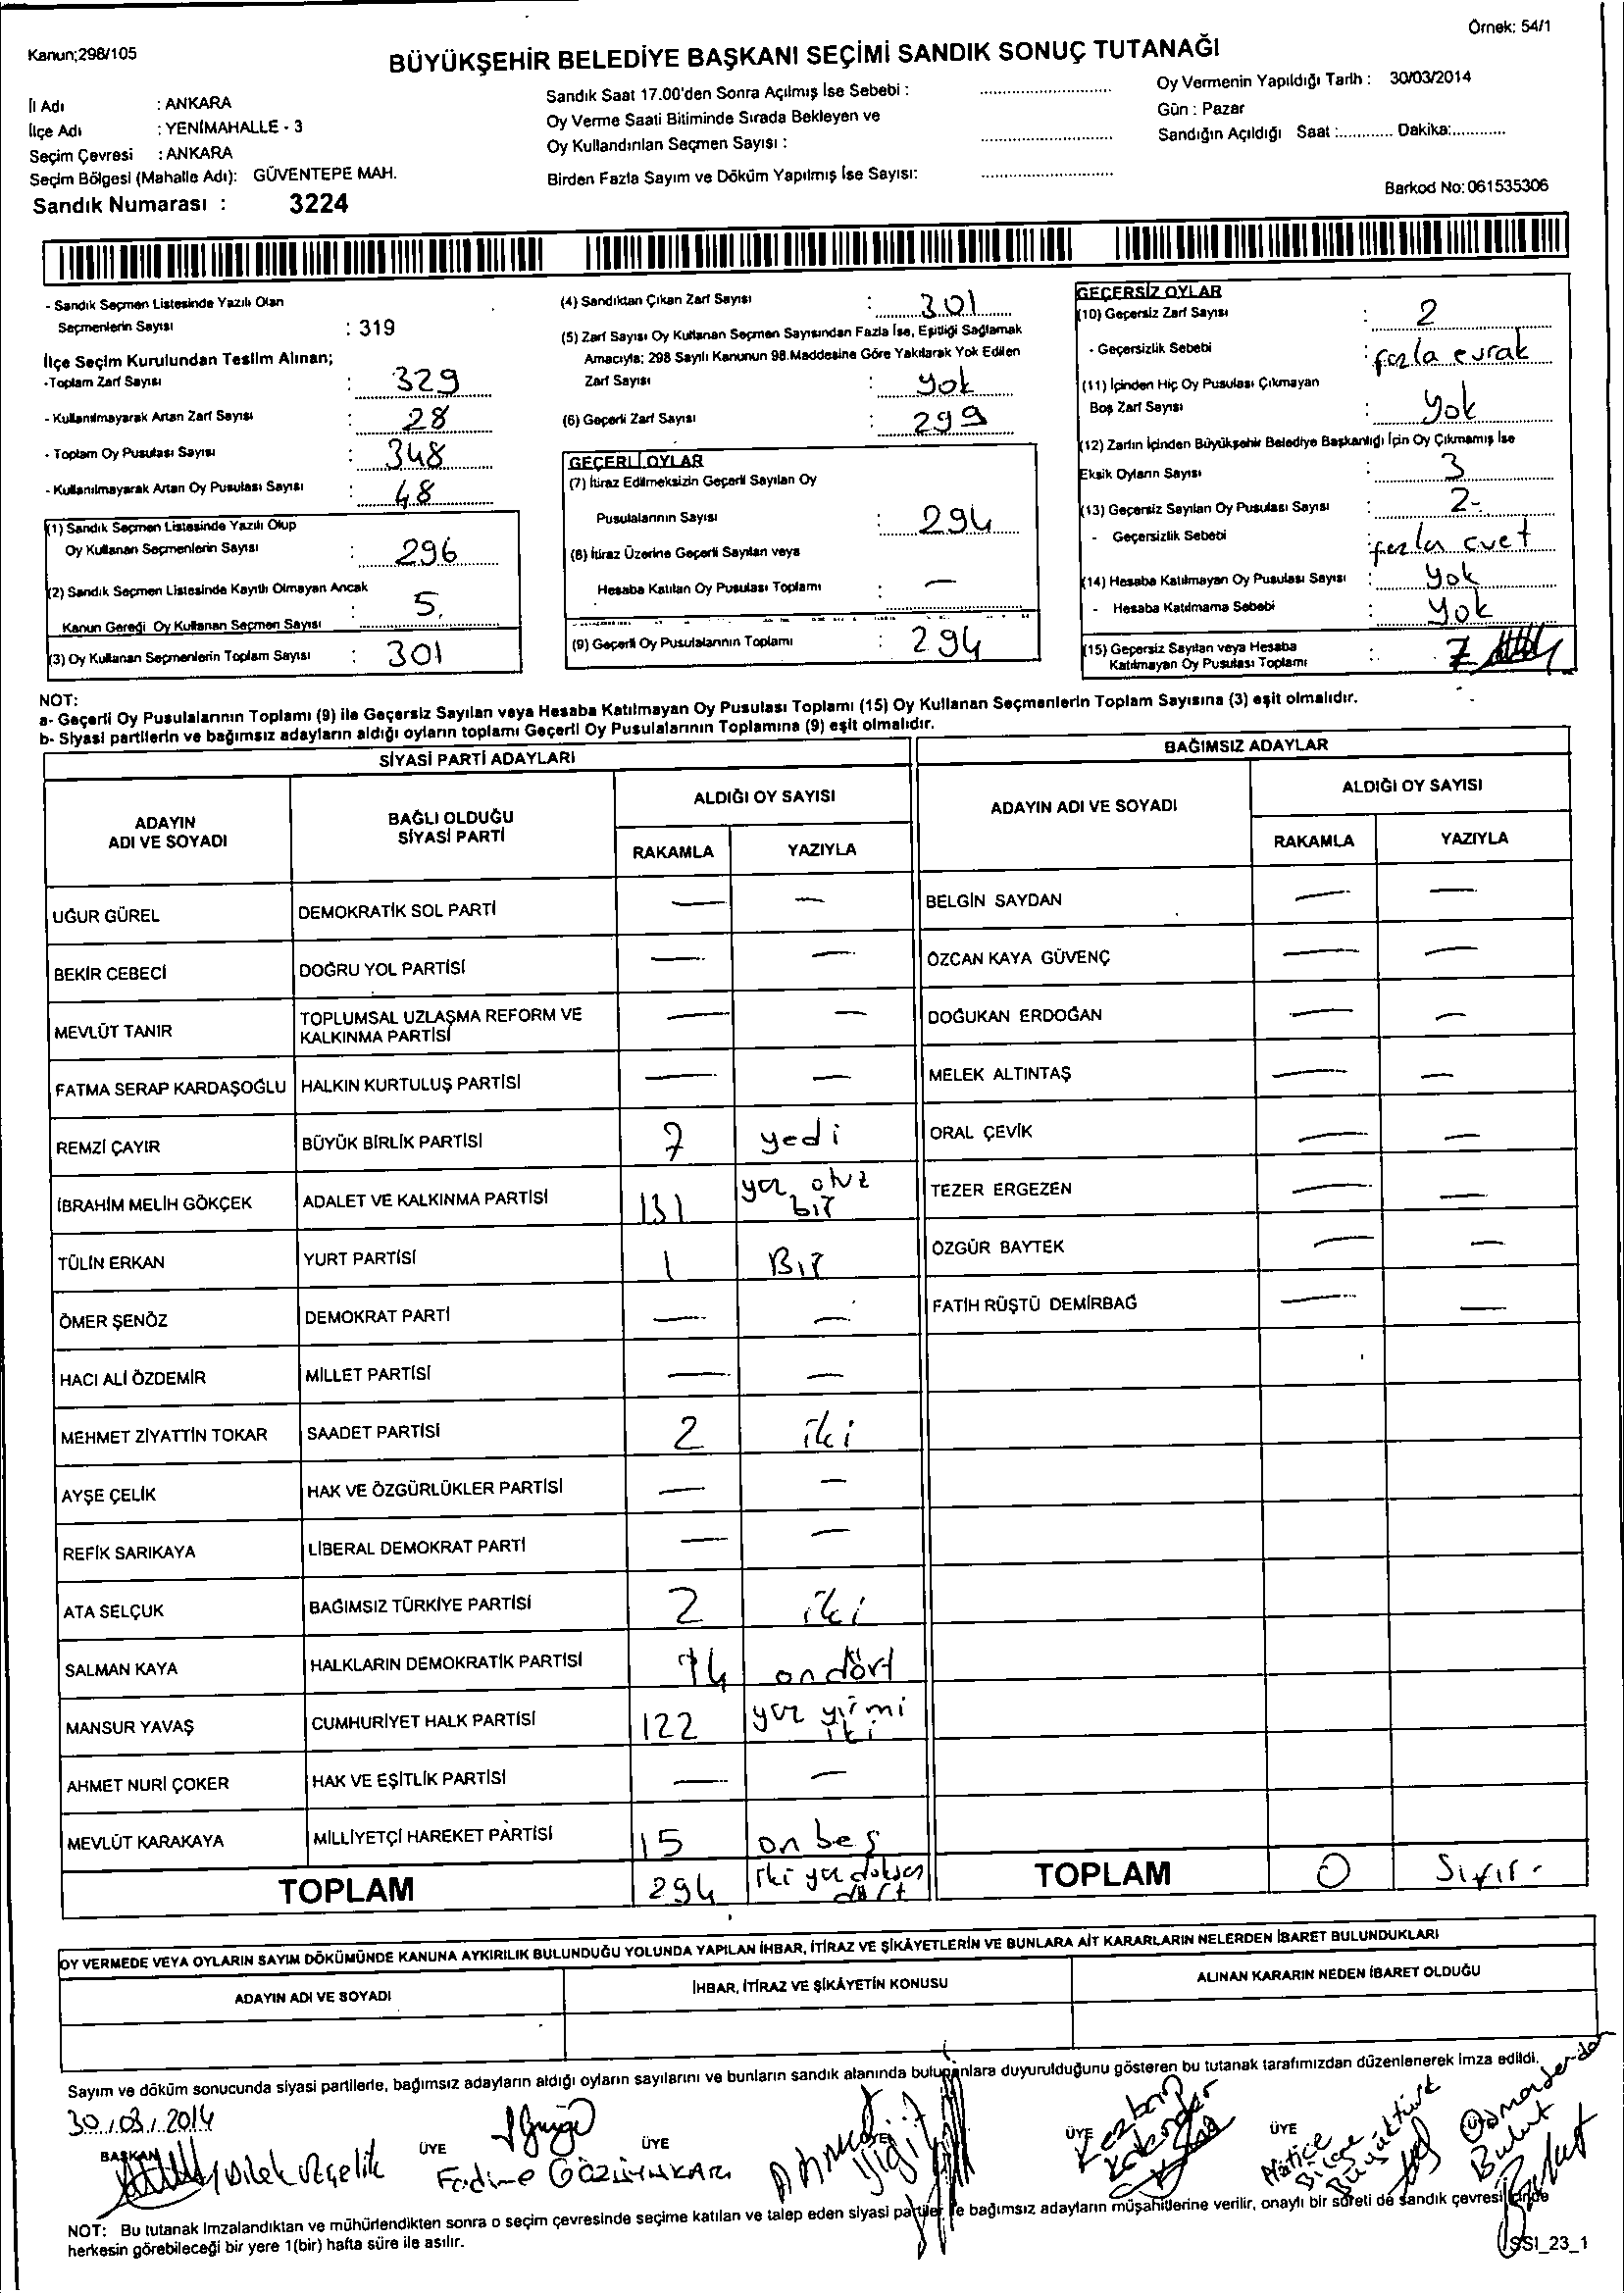 Kanun;298/105
Örnek: 54/1
BÜYÜKŞEHİR BELEDİYE BAŞKANI SEÇİMİ SANDIK SONUÇ TUTANAĞI
İl Adı : ANKARA
İlçe Adı : YENİMAHALLE - 3
Seçim Çevresi : ANKARA
Seçim Bölgesi (Mahalle Adı): GÜVENTEPE MAH.
Sandık Numarası : 3224
Sandık Saat 17.00'den Sonra Açılmış İse Sebebi :
Oy Verme Saati Bitiminde Sırada Bekleyen ve
Oy Kullandırılan Seçmen Sayısı :
Birden Fazla Sayım ve Döküm Yapılmış İse Sayısı:
Oy Vermenin Yapıldığı Tarih : 30/03/2014
Gün : Pazar
Sandığın Açıldığı Saat :............ Dakika:............
Barkod No: 061535306
- Sandık Seçmen Listesinde Yazılı Olan
Seçmenlerin Sayısı : 319
İlçe Seçim Kurulundan Teslim Alınan;
-Toplam Zarf Sayısı : 329
- Kullanılmayarak Artan Zarf Sayısı : 28
- Toplam Oy Pusulası Sayısı : 348
- Kullanılmayarak Artan Oy Pusulası Sayısı : 48
(1) Sandık Seçmen Listesinde Yazılı Olup
Oy Kullanan Seçmenlerin Sayısı : 296
(2) Sandık Seçmen Listesinde Kayıtlı Olmayan Ancak
Kanun Gereği Oy Kullanan Seçmen Sayısı : 5
(3) Oy Kullanan Seçmenlerin Toplam Sayısı : 301
(4) Sandıktan Çıkan Zarf Sayısı : 301
(5) Zarf Sayısı Oy Kullanan Seçmen Sayısından Fazla İse, Eşitliği Sağlamak
Amacıyla; 298 Sayılı Kanunun 98.Maddesine Göre Yakılarak Yok Edilen
Zarf Sayısı : yok
(6) Geçerli Zarf Sayısı : 299
GEÇERLİ OYLAR
(7) İtiraz Edilmeksizin Geçerli Sayılan Oy
Pusulalarının Sayısı : 294
(8) İtiraz Üzerine Geçerli Sayılan veya
Hesaba Katılan Oy Pusulası Toplamı : —
(9) Geçerli Oy Pusulalarının Toplamı : 294
GEÇERSİZ OYLAR
(10) Geçersiz Zarf Sayısı : 2
- Geçersizlik Sebebi : fazla evrak
(11) İçinden Hiç Oy Pusulası Çıkmayan
Boş Zarf Sayısı : yok
(12) Zarfın İçinden Büyükşehir Belediye Başkanlığı İçin Oy Çıkmamış İse
Eksik Oyların Sayısı : 3
(13) Geçersiz Sayılan Oy Pusulası Sayısı : 2-
- Geçersizlik Sebebi : fazla evet
(14) Hesaba Katılmayan Oy Pusulası Sayısı : yok
- Hesaba Katılmama Sebebi : yok
(15) Geçersiz Sayılan veya Hesaba
Katılmayan Oy Pusulası Toplamı : 7
NOT:
a- Geçerli Oy Pusulalarının Toplamı (9) ile Geçersiz Sayılan veya Hesaba Katılmayan Oy Pusulası Toplamı (15) Oy Kullanan Seçmenlerin Toplam Sayısına (3) eşit olmalıdır.
b- Siyasi partilerin ve bağımsız adayların aldığı oyların toplamı Geçerli Oy Pusulalarının Toplamına (9) eşit olmalıdır.
SİYASİ PARTİ ADAYLARI
ADAYIN ADI VE SOYADI
BAĞLI OLDUĞU SİYASİ PARTİ
ALDIĞI OY SAYISI
RAKAMLA YAZIYLA
UĞUR GÜREL DEMOKRATİK SOL PARTİ — —
BEKİR CEBECİ DOĞRU YOL PARTİSİ — —
MEVLÜT TANIR TOPLUMSAL UZLAŞMA REFORM VE KALKINMA PARTİSİ — —
FATMA SERAP KARDAŞOĞLU HALKIN KURTULUŞ PARTİSİ — —
REMZİ ÇAYIR BÜYÜK BİRLİK PARTİSİ 7 yedi
İBRAHİM MELİH GÖKÇEK ADALET VE KALKINMA PARTİSİ 131 yüz otuz bir
TÜLİN ERKAN YURT PARTİSİ 1 Bir
ÖMER ŞENÖZ DEMOKRAT PARTİ — —
HACI ALİ ÖZDEMİR MİLLET PARTİSİ — —
MEHMET ZİYATTİN TOKAR SAADET PARTİSİ 2 iki
AYŞE ÇELİK HAK VE ÖZGÜRLÜKLER PARTİSİ — —
REFİK SARIKAYA LİBERAL DEMOKRAT PARTİ — —
ATA SELÇUK BAĞIMSIZ TÜRKİYE PARTİSİ 2 iki
SALMAN KAYA HALKLARIN DEMOKRATİK PARTİSİ 14 on dört
MANSUR YAVAŞ CUMHURİYET HALK PARTİSİ 122 yüz yirmi iki
AHMET NURİ ÇOKER HAK VE EŞİTLİK PARTİSİ — —
MEVLÜT KARAKAYA MİLLİYETÇİ HAREKET PARTİSİ 15 on beş
TOPLAM 294 iki yüz doksan dört
BAĞIMSIZ ADAYLAR
ADAYIN ADI VE SOYADI
ALDIĞI OY SAYISI
RAKAMLA YAZIYLA
BELGİN SAYDAN — —
ÖZCAN KAYA GÜVENÇ — —
DOĞUKAN ERDOĞAN — —
MELEK ALTINTAŞ — —
ORAL ÇEVİK — —
TEZER ERGEZEN — —
ÖZGÜR BAYTEK — —
FATİH RÜŞTÜ DEMİRBAĞ — —
TOPLAM 0 Sıfır-
OY VERMEDE VEYA OYLARIN SAYIM DÖKÜMÜNDE KANUNA AYKIRILIK BULUNDUĞU YOLUNDA YAPILAN İHBAR, İTİRAZ VE ŞİKÂYETLERİN VE BUNLARA AİT KARARLARIN NELERDEN İBARET BULUNDUKLARI
ADAYIN ADI VE SOYADI
İHBAR, İTİRAZ VE ŞİKÂYETİN KONUSU
ALINAN KARARIN NEDEN İBARET OLDUĞU
Sayım ve döküm sonucunda siyasi partilerle, bağımsız adayların aldığı oyların sayılarını ve bunların sandık alanında bulunanlara duyurulduğunu gösteren bu tutanak tarafımızdan düzenlenerek imza edildi.
30.03.2014
BAŞKAN ÜYE ÜYE ÜYE ÜYE
Dilek Fadime Ahmet Yiğit Hatice Büyüktürk Bulut
NOT: Bu tutanak imzalandıktan ve mühürlendikten sonra o seçim çevresinde seçime katılan ve talep eden siyasi partiler ile bağımsız adayların müşahitlerine verilir, onaylı bir sureti de sandık çevresi içinde
herkesin görebileceği bir yere 1(bir) hafta süre ile asılır.
SSI_23_1